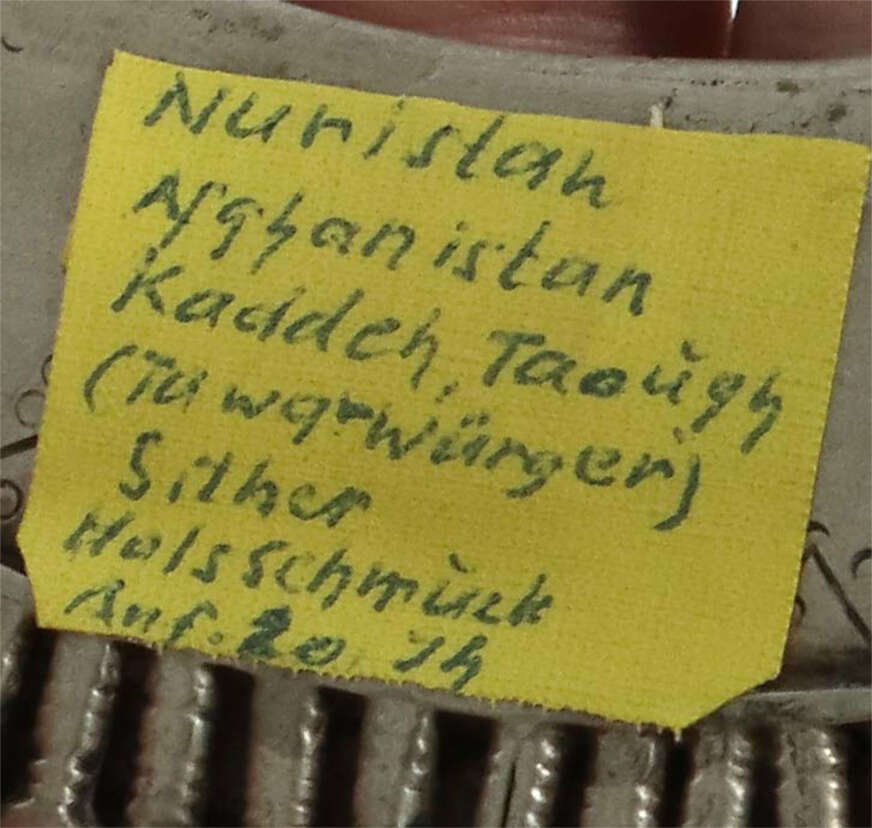 Nuristan
Afghanistan
Kaddeh, Taoùgh
(Tawq=Würger)
Silber
Halsschmùck
Anf. 20. Jh